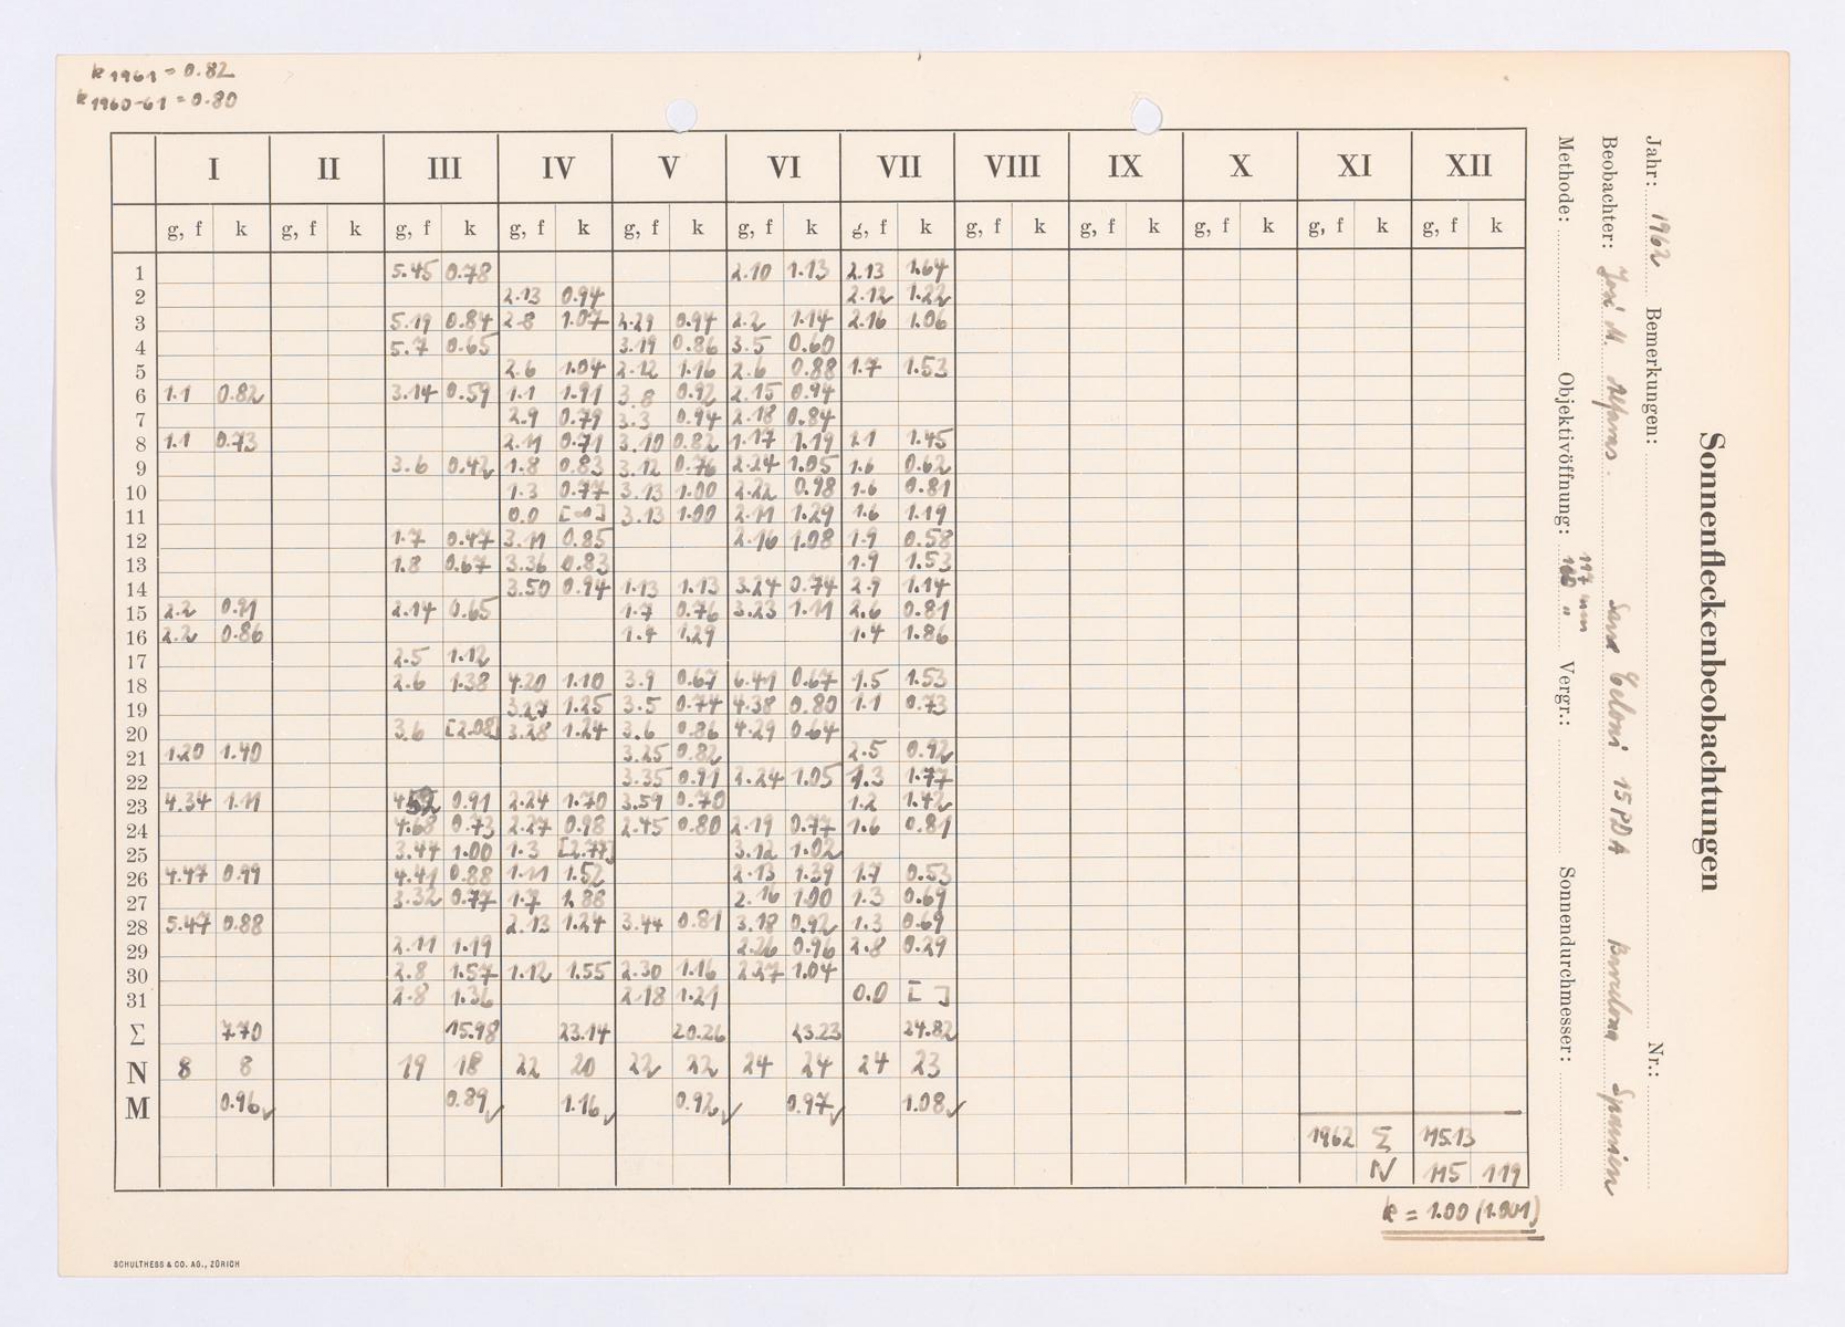 k 1961 = 0.82
k 1960-61 = 0.80
Sonnenfleckenbeobachtungen
Jahr: 1962 Bemerkungen: Nr.:
Beobachter: José M. Barcelona Spanien
Methode: Objektivöffnung: 117 mm Vergr.: Sonnendurchmesser:
I II III IV V VI VII VIII IX X XI XII
g, f k g, f k g, f k g, f k g, f k g, f k g, f k g, f k g, f k g, f k g, f k g, f k
1 5.45 0.78 2.10 1.13 2.13 1.64
2 2.13 0.94 2.12 1.22
3 5.19 0.84 2.8 1.07 2.29 0.94 2.2 1.14 2.16 1.06
4 5.7 0.65 3.19 0.86 3.5 0.60
5 2.6 1.04 2.12 1.16 2.6 0.88 1.7 1.53
6 1.1 0.82 3.14 0.59 1.1 1.91 3.8 0.92 2.15 0.94
7 2.9 0.79 3.3 0.94 2.18 0.84
8 1.1 0.73 2.11 0.71 3.10 0.82 1.17 1.19 1.1 1.45
9 3.6 0.42 1.8 0.83 3.12 0.76 2.24 1.05 1.6 0.62
10 1.3 0.77 3.13 1.00 2.22 0.98 1.6 0.81
11 0.0 [∞] 3.13 1.00 2.11 1.29 1.6 1.19
12 1.7 0.47 3.11 0.85 2.16 1.08 1.9 0.58
13 1.8 0.67 3.36 0.83 1.9 1.53
14 3.50 0.94 1.13 1.13 3.24 0.74 2.9 1.14
15 2.2 0.91 2.14 0.65 1.7 0.76 3.23 1.11 2.6 0.81
16 2.2 0.86 1.4 1.29 1.4 1.86
17 2.5 1.12
18 2.6 1.38 4.20 1.10 3.9 0.67 6.41 0.67 1.5 1.53
19 3.27 1.25 3.5 0.74 4.38 0.80 1.1 0.73
20 3.6 [2.08] 3.28 1.24 3.6 0.86 4.29 0.64
21 1.20 1.40 3.25 0.82 2.5 0.92
22 3.35 0.91 2.24 1.05 1.3 1.77
23 4.34 1.11 0.91 2.24 1.70 3.59 0.70 1.2 1.42
24 4.68 0.73 2.27 0.98 2.45 0.80 2.19 0.77 1.6 0.81
25 3.44 1.00 1.3 [2.77] 3.12 1.02
26 4.47 0.99 4.41 0.88 1.11 1.52 2.13 1.39 1.7 0.53
27 3.32 0.77 1.7 1.88 2.16 1.00 1.3 0.69
28 5.47 0.88 2.13 1.24 3.44 0.81 3.18 0.92 1.3 0.69
29 2.11 1.19 2.26 0.96 2.8 0.29
30 2.8 1.57 1.12 1.55 2.30 1.16 2.27 1.04
31 2.8 1.36 2.18 1.21 0.0 [ ]
Σ 7.70 15.98 23.14 20.26 23.23 24.82
N 8 8 19 18 22 20 22 22 24 24 24 23
M 0.96 0.89 1.16 0.92 0.97 1.08
1962 Σ 115.13
N 115 119
k = 1.00 (1.001)
SCHULTHESS & CO. AG., ZÜRICH